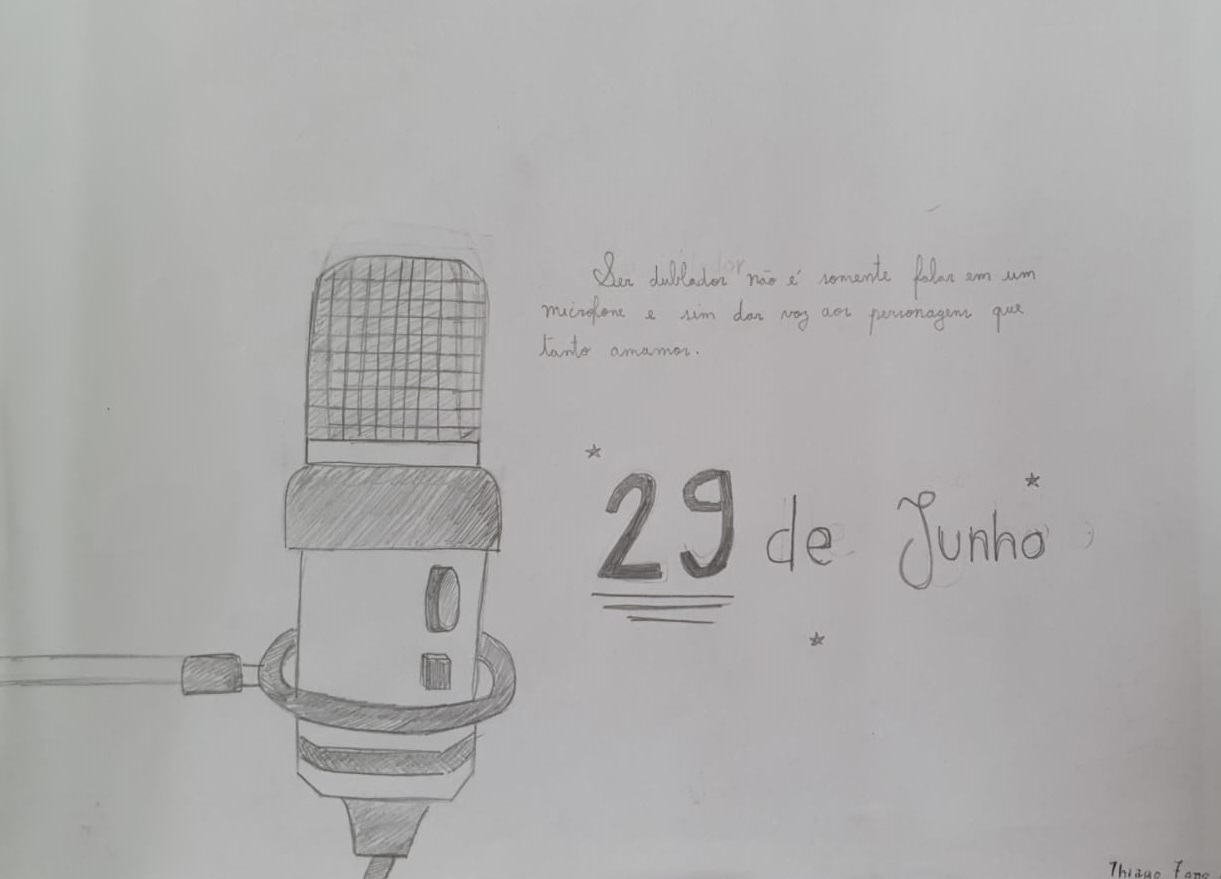 Ser dublador não é somente falar em um
microfone e sim dar voz aos personagens que
tanto amamos.
29 de Junho
Thiago